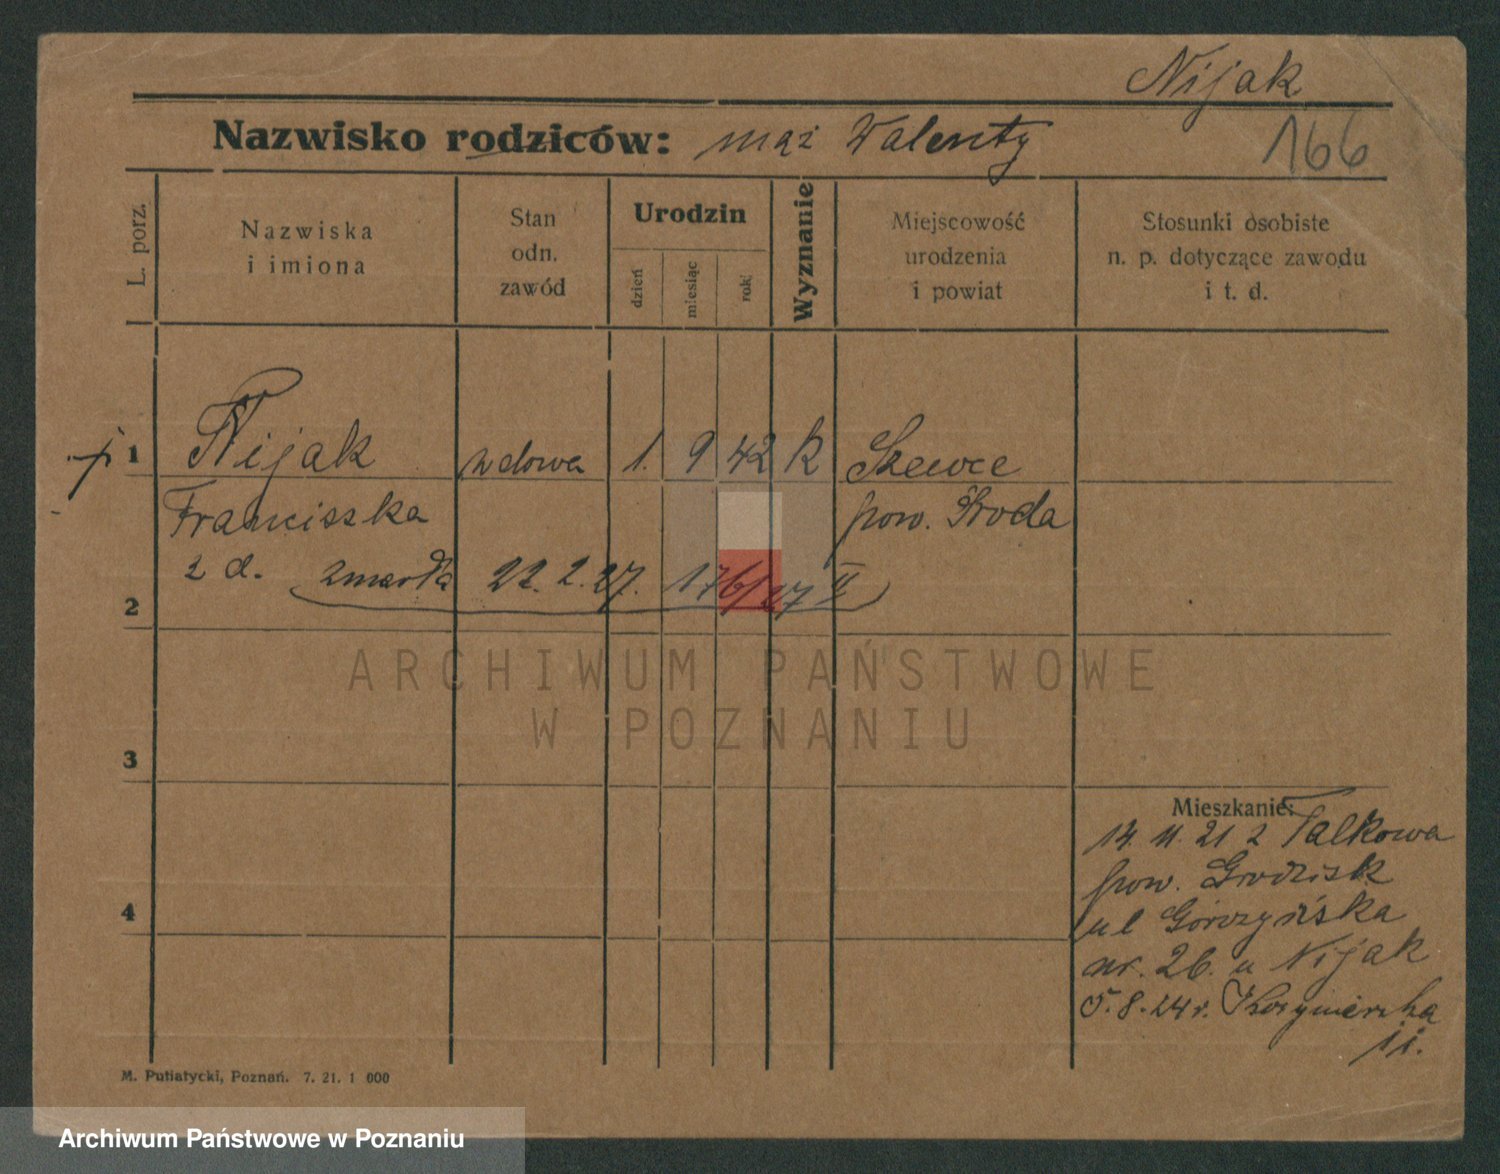 Nijak
Nazwisko rodziców: mąż Walenty
166
L. porz.
Nazwiska
i imiona
Stan
odn.
zawód
Urodzin
dzień
miesiąc
rok
Wyznanie
Miejscowość
urodzenia
i powiat
Stosunki osobiste
n. p. dotyczące zawodu
i t. d.
1 Nijak wdowa 1. 9 42 K Szewce
Franciszka pow. Środa
z d.
zmarła 22. 2. 27. 176/27 II
2
ARCHIWUM PAŃSTWOWE
W POZNANIU
3
Mieszkanie:
14. 11. 21 z Talkowa
pow. Grodzisk
4
ul Górczyńska
nr. 26. u Nijak
5. 8. 24 r.
11.
M. Putiatycki, Poznań. 7. 21. 1 000
Archiwum Państwowe w Poznaniu